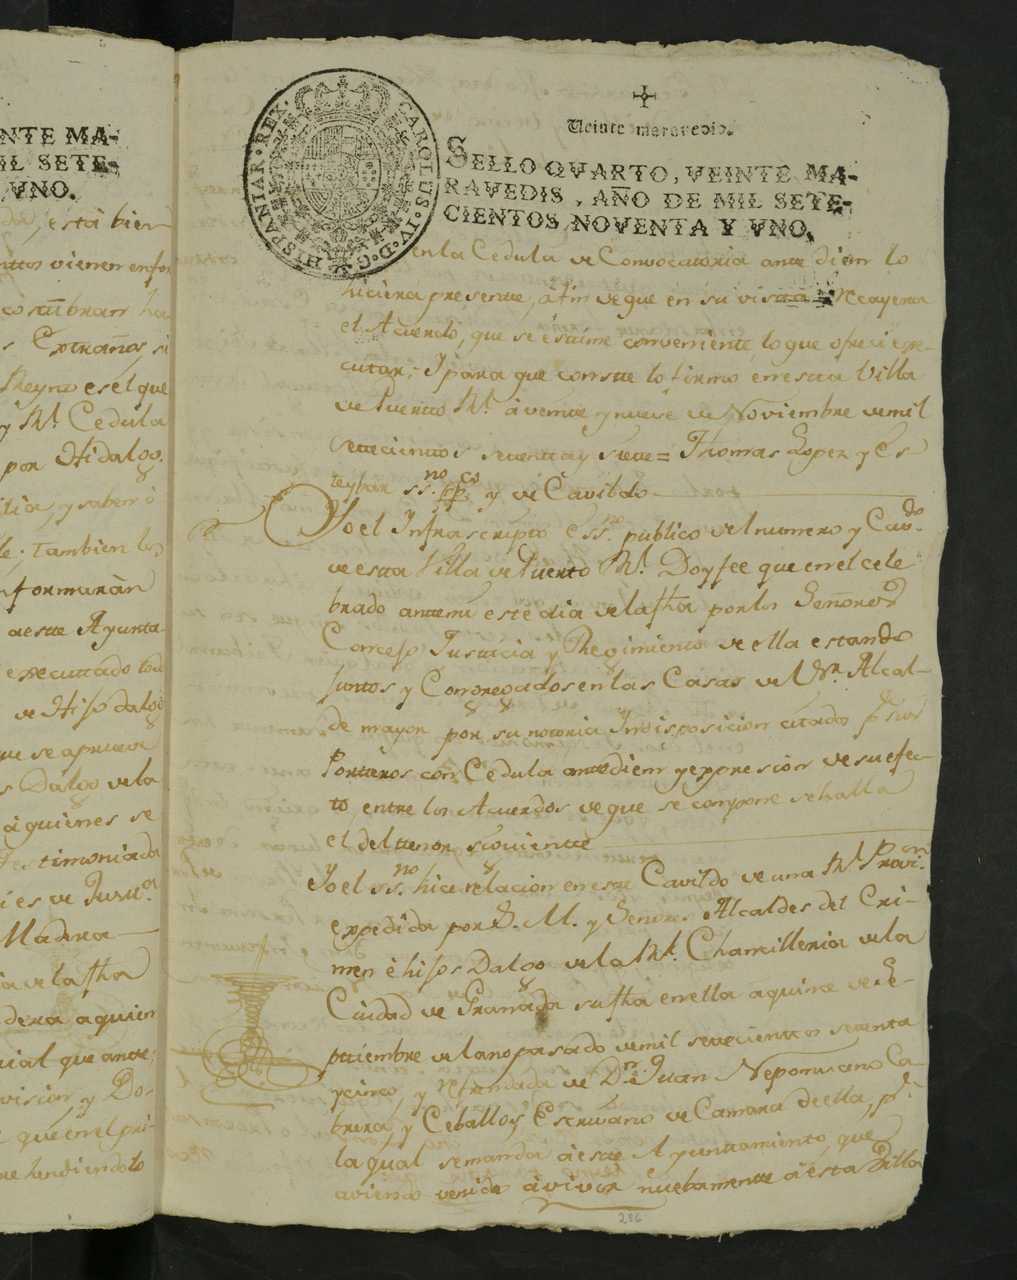 NTE MA-
IL SETE-
VNO.
está bien
vienen enfor
costũbran ha
s Extraños si
Reyno es el que
y Rl. Cedula
por Hidalgo.
y saber ò
le; tambien los
nformaràn
a este Ayunta-
executado todo
de Hijo dalgo
ue se aprueva
s Dalgo de la
à quienes se
Testimoniada
Madera
a de la fha
dera a quien
cial que ante
vision y Do-
que en el pri-
CAROLUS IV D. G. HISPANIAR. REX.
Veinte maravedis.
SELLO QVARTO, VEINTE MA-
RAVEDIS, AÑO DE MIL SETE-
CIENTOS, NOVENTA Y VNO.
en la Cedula de Convocatoria ante diem lo
hiciera presente, afin de que en su vista recayera
el Acuerdo, que se estime conveniente, lo que ofreci exe-
cutar; Y para que conste lo firmo en esta Villa
de Puerto Rl. à veinte y nueve de Noviembre de mil
setecientos setenta y siete = Thomas Lopez y Es-
teban ssno. ppco. y de Cavildo
Yo el Infrascripto Essno. publico del numero y Cavdo.
de esta Villa de Puerto Rl. Doy fee que en el cele
brado ante mi este dia de la fha por los Señores
Concejo Justicia y Regimiento de ella estando
Juntos y Congregados en las Casas del Sr. Alcal-
de mayor por su notoria Indisposicion citado pr sus
Porteros con Cedula ante diem y expresion de su efec-
to, entre los Acuerdos de que se compone se halla
el del tenor siguiente
Yo el ssno. hice relacion en este Cavildo de una Rl. Provion.
expedida por S. M. y Señores Alcaldes del Cri-
men è hijos Dalgo de la Rl. Chancilleria de la
Ciudad de Granada su fha en ella a quince de Se-
ptiembre del año pasado de mil setecientos setenta
y cinco, y refrendada de Dn. Juan Nepomuceno Ca-
brera, y Ceballos, Escrivano de Camara de ella, pr.
la qual se manda à este Ayuntamiento, que
aviendo venido à vivir nuebamente à esta Villa
286